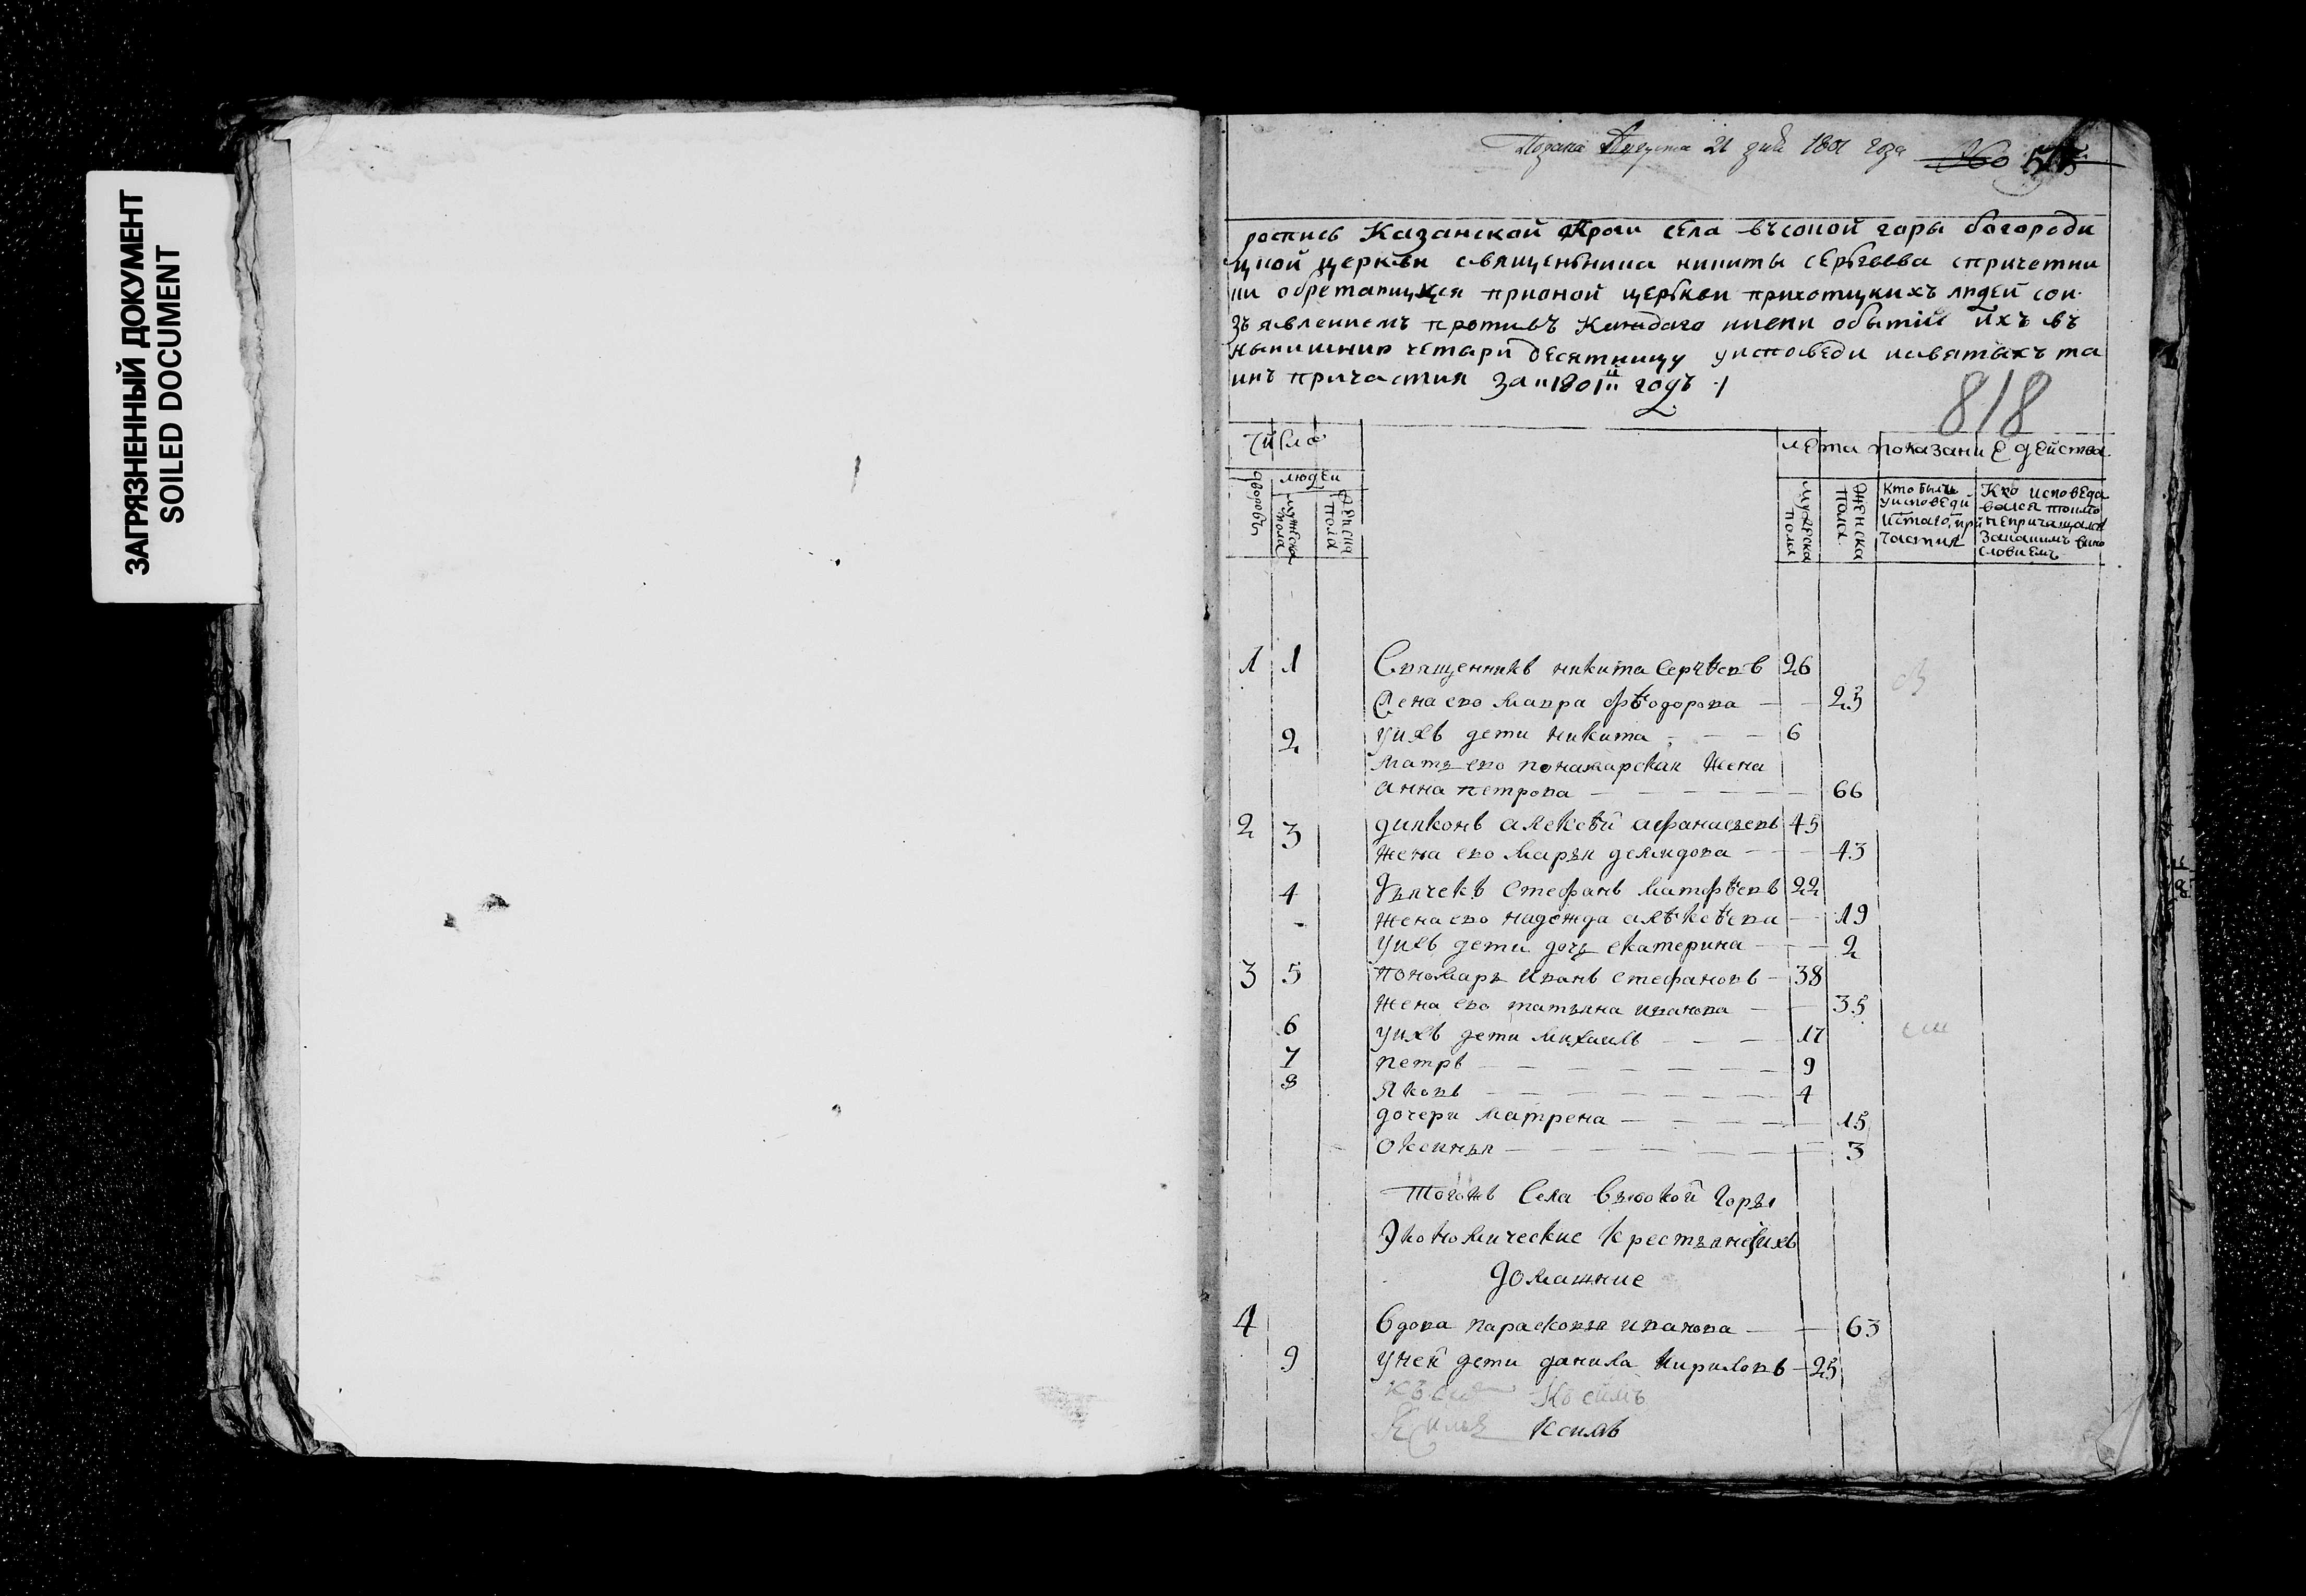 ЗАГРЯЗНЕННЫЙ ДОКУМЕНТ
SOILED DOCUMENT
Подана Августа 21 дня 1801 года
818
роспись Казанской округи села высокой горы богороди
цкой церкви священника никиты сергѣева спричетни
ки обретающихсяприоной церкви приходицкихъ людей сои
зъявлениемъ противъ каждаго имени обытии ихъ въ
нынишнию четари десятницу уисповеди исвятыхъ та
инъ причастия за 1801й годъ
Число
лета показание действа
дворовъ
людей
мужеска пола
женска пола
мужеска пола
женска пола
Кто былъ
уисповеди
истаго при
частия
Кто исповеда
вался токмо
непричащался
Закакимъ вино
словиемъ
1 1 Священникъ никита Сергѣевъ 26
Жена ево мавра фѣодорова 23
2 уихъ дети никита 6
мать ево пономарская жена
анна петрова 66
2 3 диаконъ алексѣй афанасьевъ 45
жена ево марья демидова 43
4 Дьячекъ стефанъ матфѣевъ 22
жена ево надежда алѣксѣева 19
уихъ дети дочь екатерина 2
3 5 пономарь иванъ стефановъ 38
жена ево татьяна иванова 35
6 уихъ дети михаилъ 17
7 петръ 9
8 яковъ 4
дочери матрена 15
оксинья 3
Тогожъ Села Высокой Горы
Экономические крестьяне ихъ
Домашние
4 Вдова парасковья иванова 63
9 унеи дети данила кириловъ 25
ксимъ